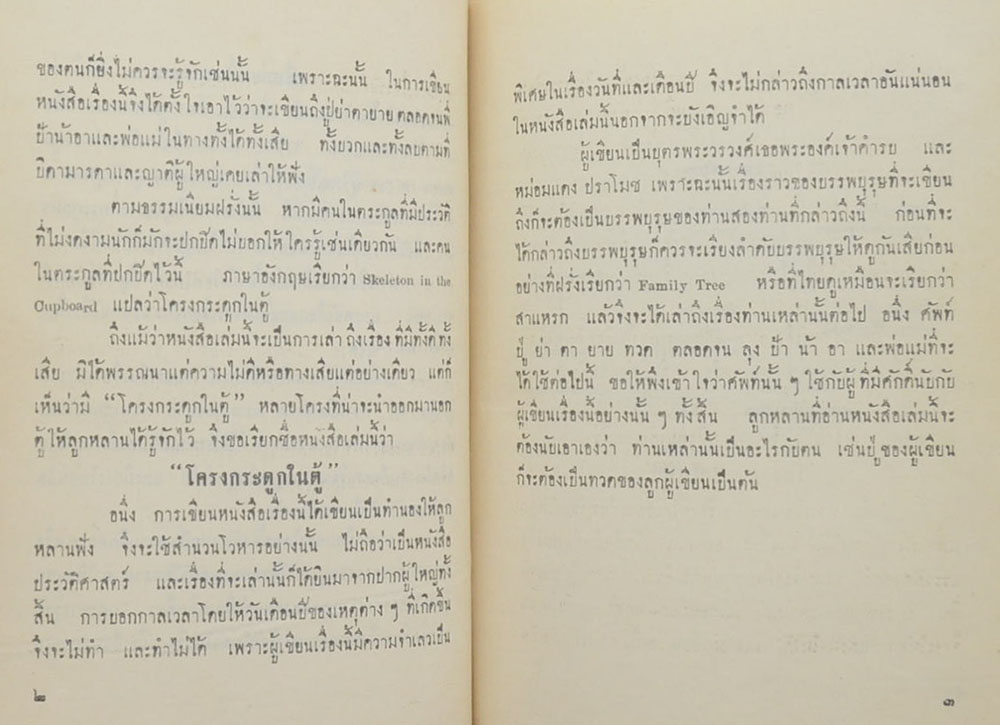 ของตนก็ยิ่งไม่ควรจะรู้จักเช่นนั้น เพราะฉะนั้น ในการเขียน
หนังสือเรื่องนี้จึงได้ตั้งใจเอาไว้ว่าจะเขียนถึงปู่ย่าตายาย ตลอดจนพี่
ป้าน้าอาและพ่อแม่ในทางทั้งได้ทั้งเสีย ทั้งบวกและทั้งลบตามที่
บิดามารดาและญาติผู้ใหญ่เคยเล่าให้ฟัง
ตามธรรมเนียมฝรั่งนั้น หากมีคนในตระกูลที่มีประวัติ
ที่ไม่งดงามนักก็มักจะปกปิดไม่บอกให้ใครรู้เช่นเดียวกัน และคน
ในตระกูลที่ปกปิดไว้นี้ ภาษาอังกฤษเรียกว่า Skeleton in the
Cupboard แปลว่าโครงกระดูกในตู้
ถึงแม้ว่าหนังสือเล่มนี้จะเป็นการเล่าถึงเรื่องที่มีทั้งดีทั้ง
เสีย มิได้พรรณนาแต่ความไม่ดีหรือทางเสียแต่อย่างเดียว แต่ก็
เห็นว่ามี “โครงกระดูกในตู้” หลายโครงที่น่าจะนำออกมานอก
ตู้ให้ลูกหลานได้รู้จักไว้ จึงขอเรียกชื่อหนังสือเล่มนี้ว่า
“โครงกระดูกในตู้”
อนึ่ง การเขียนหนังสือเรื่องนี้ได้เขียนเป็นทำนองให้ลูก
หลานฟัง จึงจะใช้สำนวนโวหารอย่างนั้น ไม่ถือว่าเป็นหนังสือ
ประวัติศาสตร์ และเรื่องที่จะเล่านั้นก็ได้ยินมาจากปากผู้ใหญ่ทั้ง
สิ้น การบอกกาลเวลาโดยให้วันเดือนปีของเหตุต่าง ๆ ที่เกิดขึ้น
จึงจะไม่ทำ และทำไม่ได้ เพราะผู้เขียนเรื่องนี้มีความจำเลวเป็น
๒
พิเศษในเรื่องวันที่และเดือนปี จึงจะไม่กล่าวถึงกาลเวลาอันแน่นอน
ในหนังสือเล่มนี้นอกจากจะบังเอิญจำได้
ผู้เขียนเป็นบุตรพระวรวงศ์เธอพระองค์เจ้าคำรบ และ
หม่อมแดง ปราโมช เพราะฉะนั้นเรื่องราวของบรรพบุรุษที่จะเขียน
ถึงก็จะต้องเป็นบรรพบุรุษของท่านสองท่านที่กล่าวถึงนี้ ก่อนที่จะ
ได้กล่าวถึงบรรพบุรุษก็ควรจะเรียงลำดับบรรพบุรุษให้ดูกันเสียก่อน
อย่างที่ฝรั่งเรียกว่า Family Tree หรือที่ไทยดูเหมือนจะเรียกว่า
สาแหรก แล้วจึงจะได้เล่าถึงเรื่องท่านเหล่านั้นต่อไป อนึ่ง ศัพท์
ปู่ ย่า ตา ยาย ทวด ตลอดจน ลุง ป้า น้า อา และพ่อแม่ที่จะ
ได้ใช้ต่อไปนี้ ขอให้พึงเข้าใจว่าศัพท์นั้น ๆ ใช้กับผู้ที่มีศักดิ์นับกับ
ผู้เขียนเรื่องนี้อย่างนั้น ๆ ทั้งสิ้น ลูกหลานที่อ่านหนังสือเล่มนี้จะ
ต้องนับเอาเองว่า ท่านเหล่านั้นเป็นอะไรกับตน เช่นปู่ของผู้เขียน
ก็จะต้องเป็นทวดของลูกผู้เขียนเป็นต้น
๓